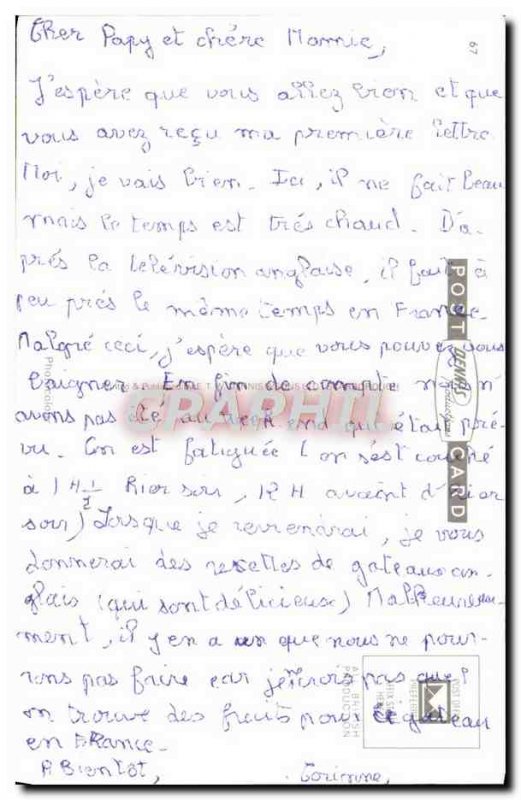 Cher Papy et chère Mamie,
J'espère que vous allez bien et que
vous avez reçu ma première lettre
Moi, je vais bien. Ici, il ne fait beau
mais le temps est trés chaud. D'a-
prés la télévision anglaise, il fait à
peu prés le même temps en France.
Malgré ceci, j'espère que vous pouvez vous
baigner. En fin de compte nous n'
avons pas été au week end qui était pré-
vu. On est fatiguée (on s'est couché
à 1 H 1/2 hier soir, 12 H avant d'hier
soir) Lorsque je reviendrai, je vous
donnerai des recettes de gateaux an-
glais (qui sont délicieuse) Malheureuse-
ment, il y en a un que nous ne pour-
rons pas faire car je ne crois pas que
on trouve des fruits pour ce gateau
en FRance.
A Bientôt, Corinne,
67
POST CARD
DENNIS
Photocolor
A BRITISH
PRODUCTION
POST OFFICE
PREFERRED
CPAPHIL